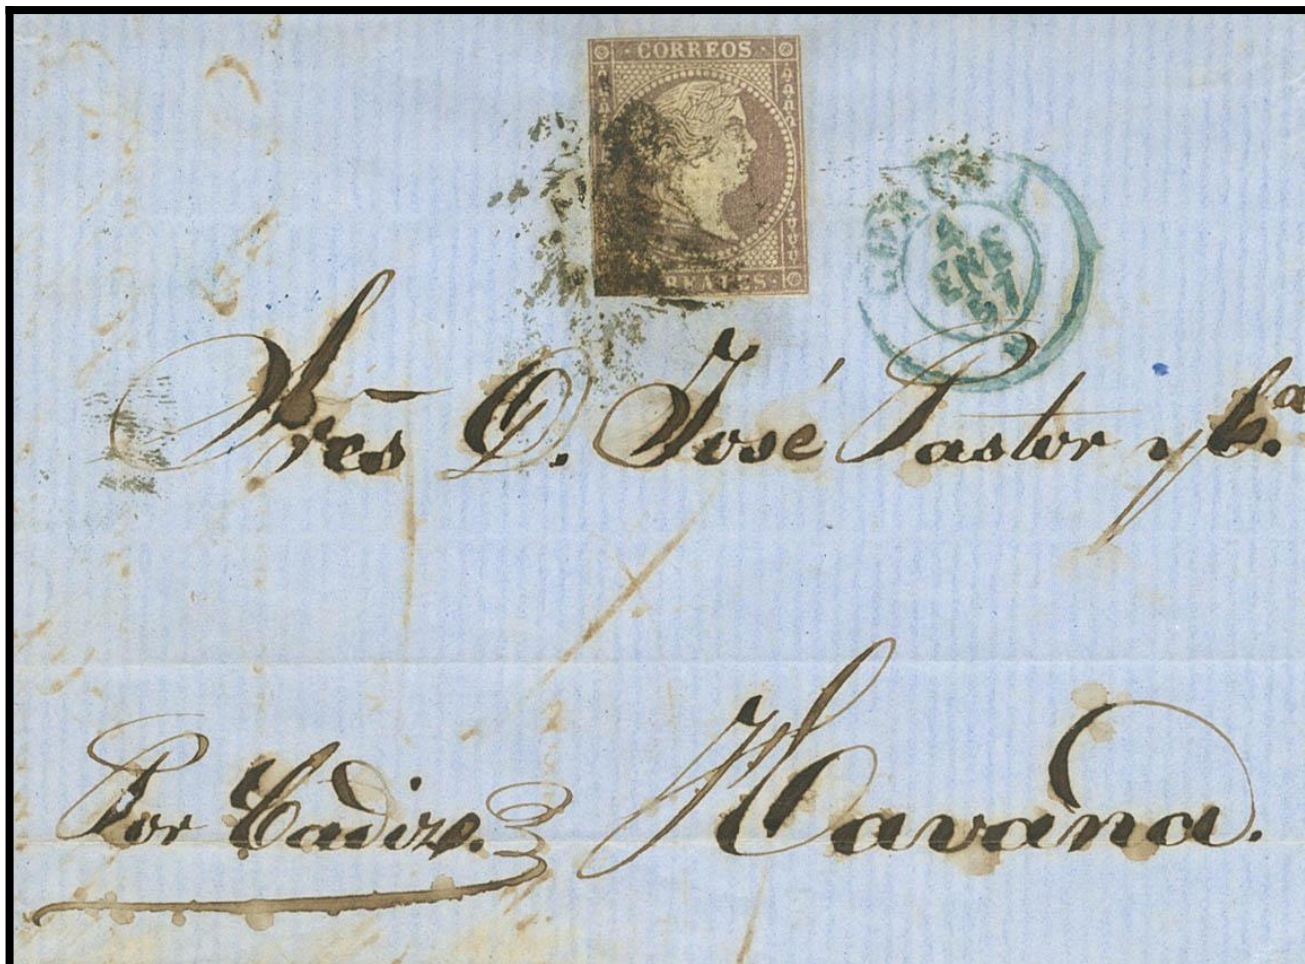 CORREOS
REALES.
4
ENE
57
Sres D. José Pastor y C.ª
Por Cadiz.
Havana.